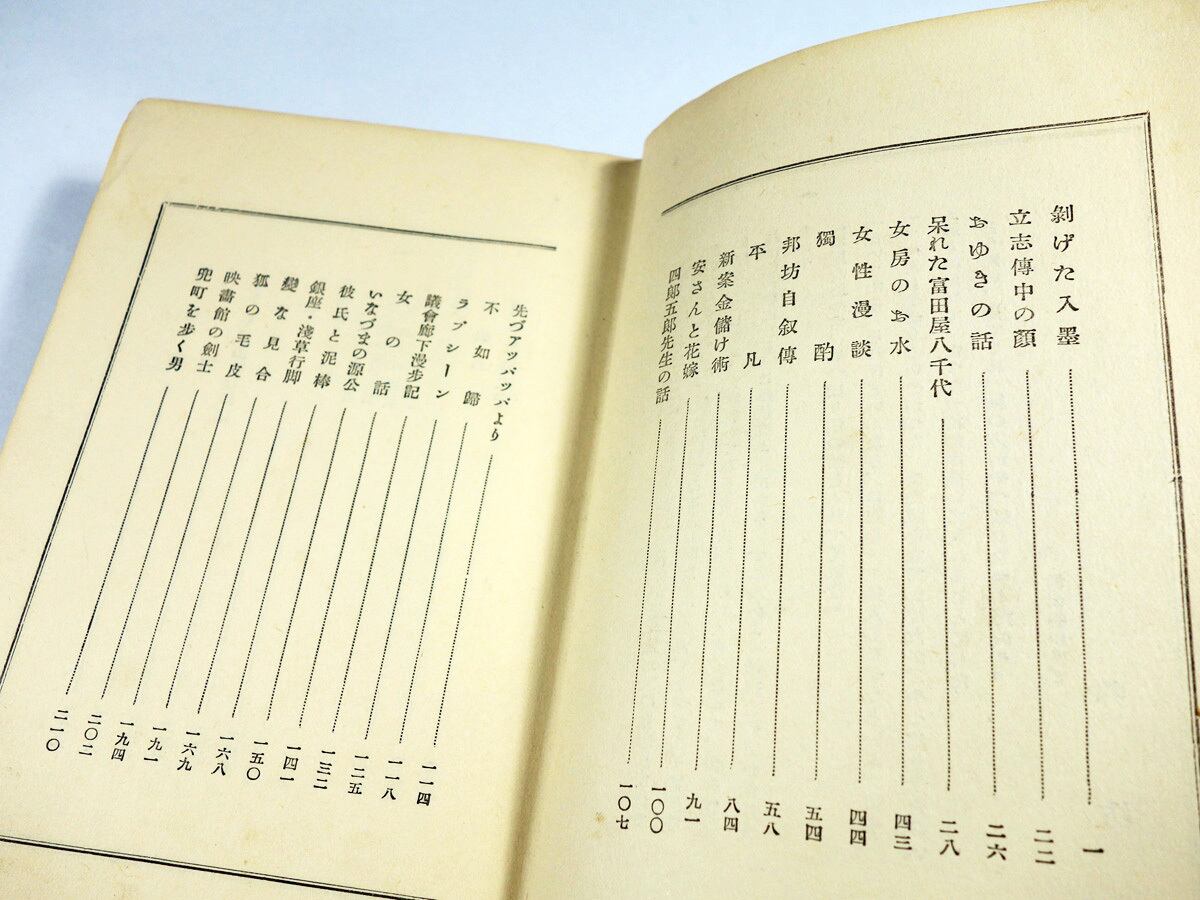 剝げた入墨……一
立志傳中の顏……二二
おゆきの話……二六
呆れた富田屋八千代……二八
女房のお水……四三
女性漫談……四四
獨酌……五四
邦坊自叙傳……五八
平凡……八四
新案金儲け術……九一
安さんと花嫁……一〇〇
四郎五郎先生の話……一〇七
先づアツパツパより……一一四
不如歸……一一八
ラブシーン……一二五
議會廊下漫步記……一三二
女の話……一四一
いなづまの源公……一五〇
彼氏と泥棒……一六八
銀座・淺草行脚……一六九
變な見合……一九一
狐の毛皮……一九四
映畫館の劍士……二〇二
兜町を步く男……二一〇